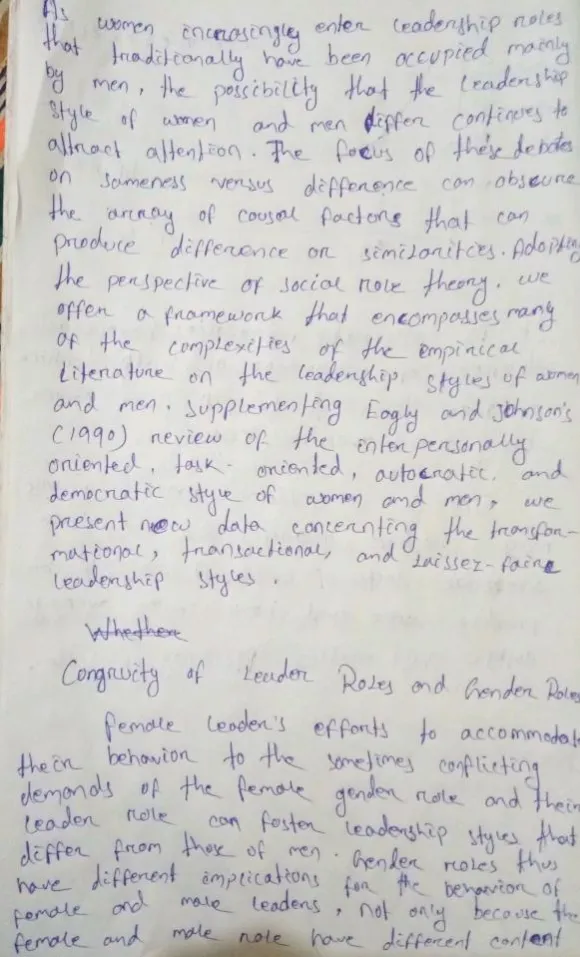 As women increasingly enter leadership roles
that traditionally have been occupied mainly
by men, the possibility that the leadership
style of women and men differ continues to
attract attention. The focus of these debates
on sameness versus difference can obscure
the array of causal factors that can
produce difference or similarities. Adopting
the perspective of social role theory, we
offer a framework that encompasses many
of the complexities of the empirical
Literature on the leadership styles of women
and men. Supplementing Eagly and Johnson's
(1990) review of the interpersonally
oriented, task-oriented, autocratic, and
democratic style of women and men, we
present new data concerning the transfor-
mational, transactional, and Laissez-faire
leadership styles.
Whether
Congruity of Leader Roles and Gender Roles
Female leader's efforts to accommodate
their behavior to the sometimes conflicting
demands of the female gender role and their
leader role can foster leadership styles that
differ from those of men. Gender roles thus
have different implications for the behavior of
female and male leaders, not only because the
female and male role have different content